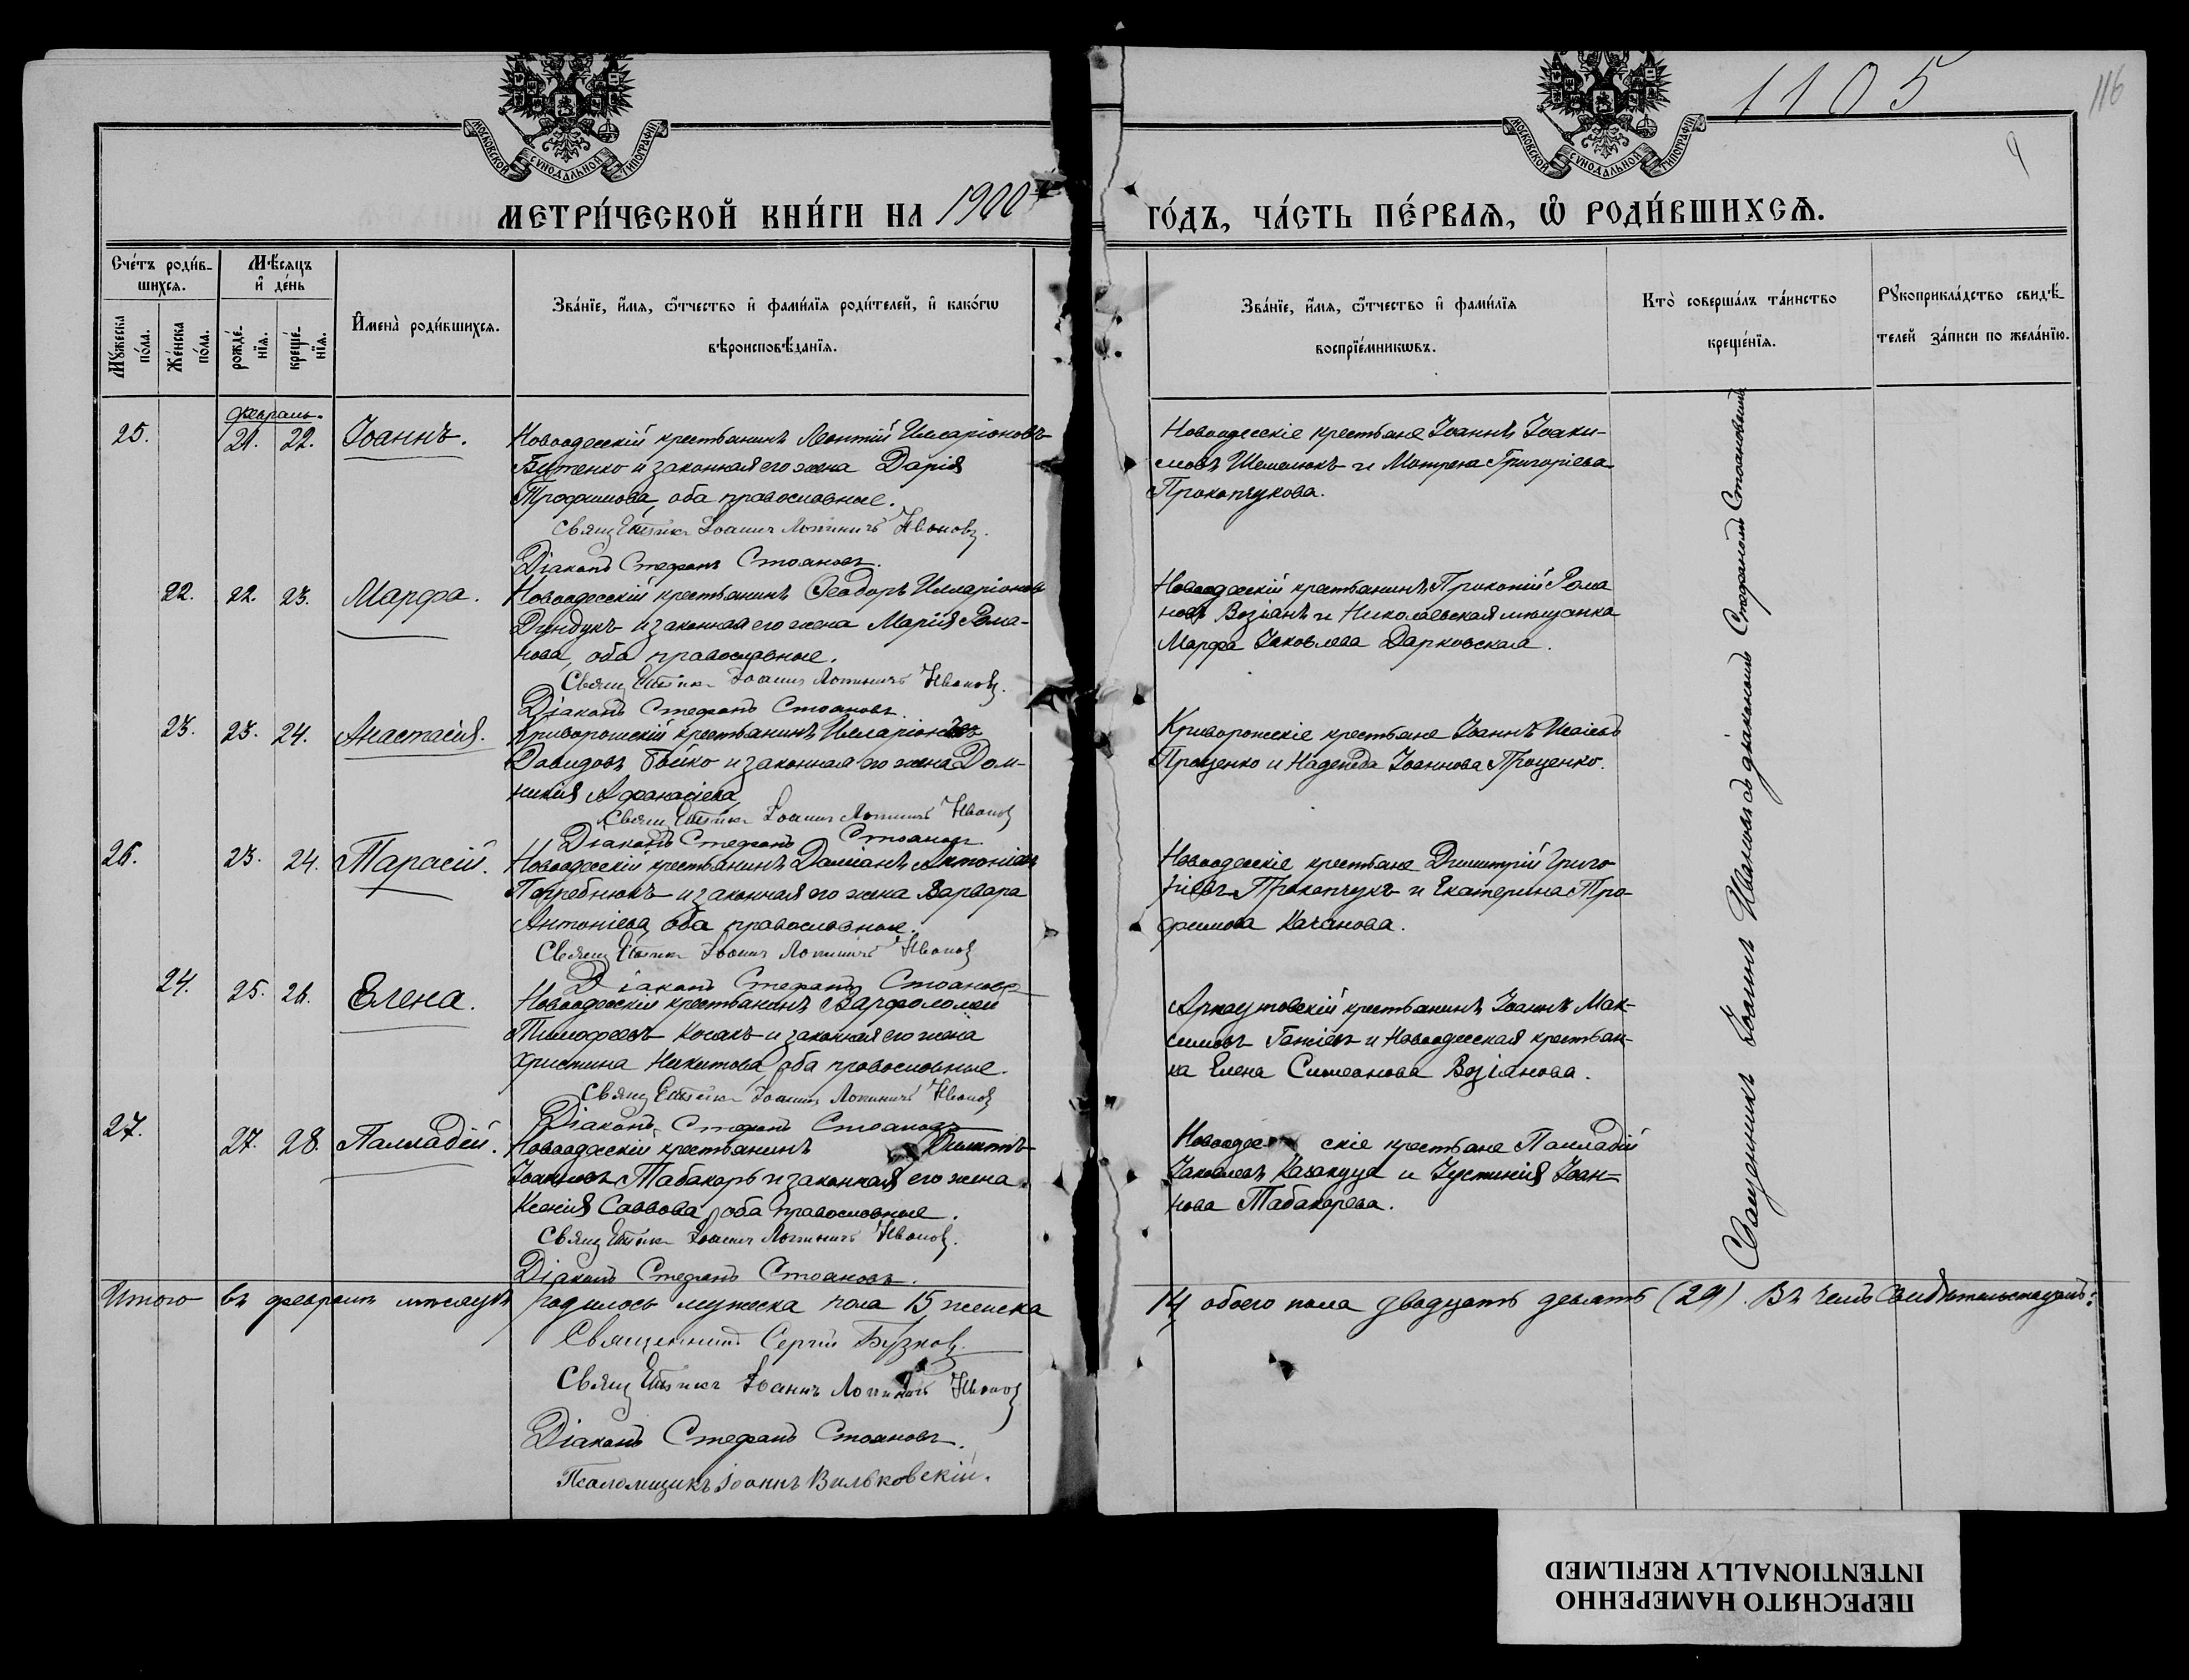 МОСКОВСКОЙ СѴНОДАЛЬНОЙ ТИПОГРАФІИ
МОСКОВСКОЙ СѴНОДАЛЬНОЙ ТИПОГРАФІИ
1105
116
9
МЕТРИ́ЧЕСКОЙ КНИ́ГИ НА 1900
ГО́ДЪ, ЧА́СТЬ ПЕ́РВАѦ, Ѡ҆ РОДИ́ВШИХСѦ.
Сче́тъ роди́в-
шихсѧ.
Мѣ́сѧцъ
и҆ де́нь
Мꙋ́жеска
по́ла.
Же́нска
по́ла.
рожде́-
нїѧ.
креще́-
нїѧ.
И҆мена̀ роди́вшихсѧ.
Зва́нїе, и҆́мѧ, ѻ҆́тчество и҆ фами́лїѧ роди́телей, и҆ како́гѡ
вѣроисповѣ́данїѧ.
Зва́нїе, и҆́мѧ, ѻ҆́тчество и҆ фами́лїѧ
воспрїе́мникѡвъ.
Кто̀ соверша́лъ та́инство
креще́нїѧ.
Рꙋкоприкла́дство свидѣ́-
телей за́писи по жела́нїю.
Февраль.
25. 21. 22. Іоаннъ. Новоодесскій крестьянинъ Леонтій Илларіоновъ
Бутенко и законная его жена Дарія
Трофимова, оба православные.
Священникъ Іоаннъ Логиничъ Ивановъ.
Діаконъ Стефанъ Стояновъ.
Новоодесскіе крестьяне Іоаннъ Іоаки-
мовъ Шемелюкъ и Мотрена Григоріева
Прокопчукова.
22. 22. 23. Марфа. Новоодесскій крестьянинъ Ѳеодоръ Илларіоновъ
Диндукъ и законная его жена Марія Рома-
нова, оба православные.
Священникъ Іоаннъ Логиничъ Ивановъ.
Діаконъ Стефанъ Стояновъ.
Новоодесскій крестьянинъ Прокопій Рома
новъ Возіанъ и Николаевская мѣщанка
Марфа Іаковлева Дарковская.
23. 23. 24. Анастасія. Криворожскій крестьянинъ Илларіонъ
Давидовъ Бойко и законная его жена Дом-
никія Афанасіева
Священникъ Іоаннъ Логиничъ Ивановъ
Діаконъ Стефанъ Стояновъ
Криворожскіе крестьяне Іоаннъ Исаіевъ
Проценко и Надежда Іоаннова Проценко.
26. 23. 24. Тарасій. Новоодесскій крестьянинъ Даміанъ Антоніевъ
Погребнюкъ и законная его жена Варвара
Антоніева, оба православные.
Священникъ Іоаннъ Логиничъ Ивановъ
Діаконъ Стефанъ Стояновъ
Новоодесскіе крестьяне Димитрій Григо
ріевъ Прокопчукъ и Екатерина Тро-
фимова Качанова.
24. 25. 26. Елена. Новоодесскій крестьянинъ Варфоломей
Тимофеевъ Косакъ и законная его жена
Христина Никитова, оба православные.
Священникъ Іоаннъ Логиничъ Ивановъ
Діаконъ Стефанъ Стояновъ
Арнаутовскій крестьянинъ Іоаннъ Мак-
симовъ Ганіевъ и Новоодесская крестьян-
ка Елена Симеонова Возіанова.
27. 27. 28. Палладій. Новоодесскій крестьянинъ
Іоанновъ Табакарь и законная его жена
Ксенія Саввова, оба православные.
Священникъ Іоаннъ Логиничъ Ивановъ.
Діаконъ Стефанъ Стояновъ.
Новоодесскіе крестьяне Палладій
Іаковлевъ Казакуца и Іустинія Іоан-
нова Табакарева.
Священникъ Іоаннъ Ивановъ съ діакономъ Стефаномъ Стояновымъ
Итого въ февралѣ мѣсяцѣ родилось мужеска пола 15 женска
14 обоего пола двадцать девять (29). Въ чемъ свидѣтельствуемъ:
Священникъ Сергій Бузковъ
Священникъ Іоаннъ Логиничъ Ивановъ
Діаконъ Стефанъ Стояновъ.
Псаломщикъ Іоаннъ Вильковскій.
ПЕРЕСНЯТО НАМЕРЕННО
INTENTIONALLY REFILMED